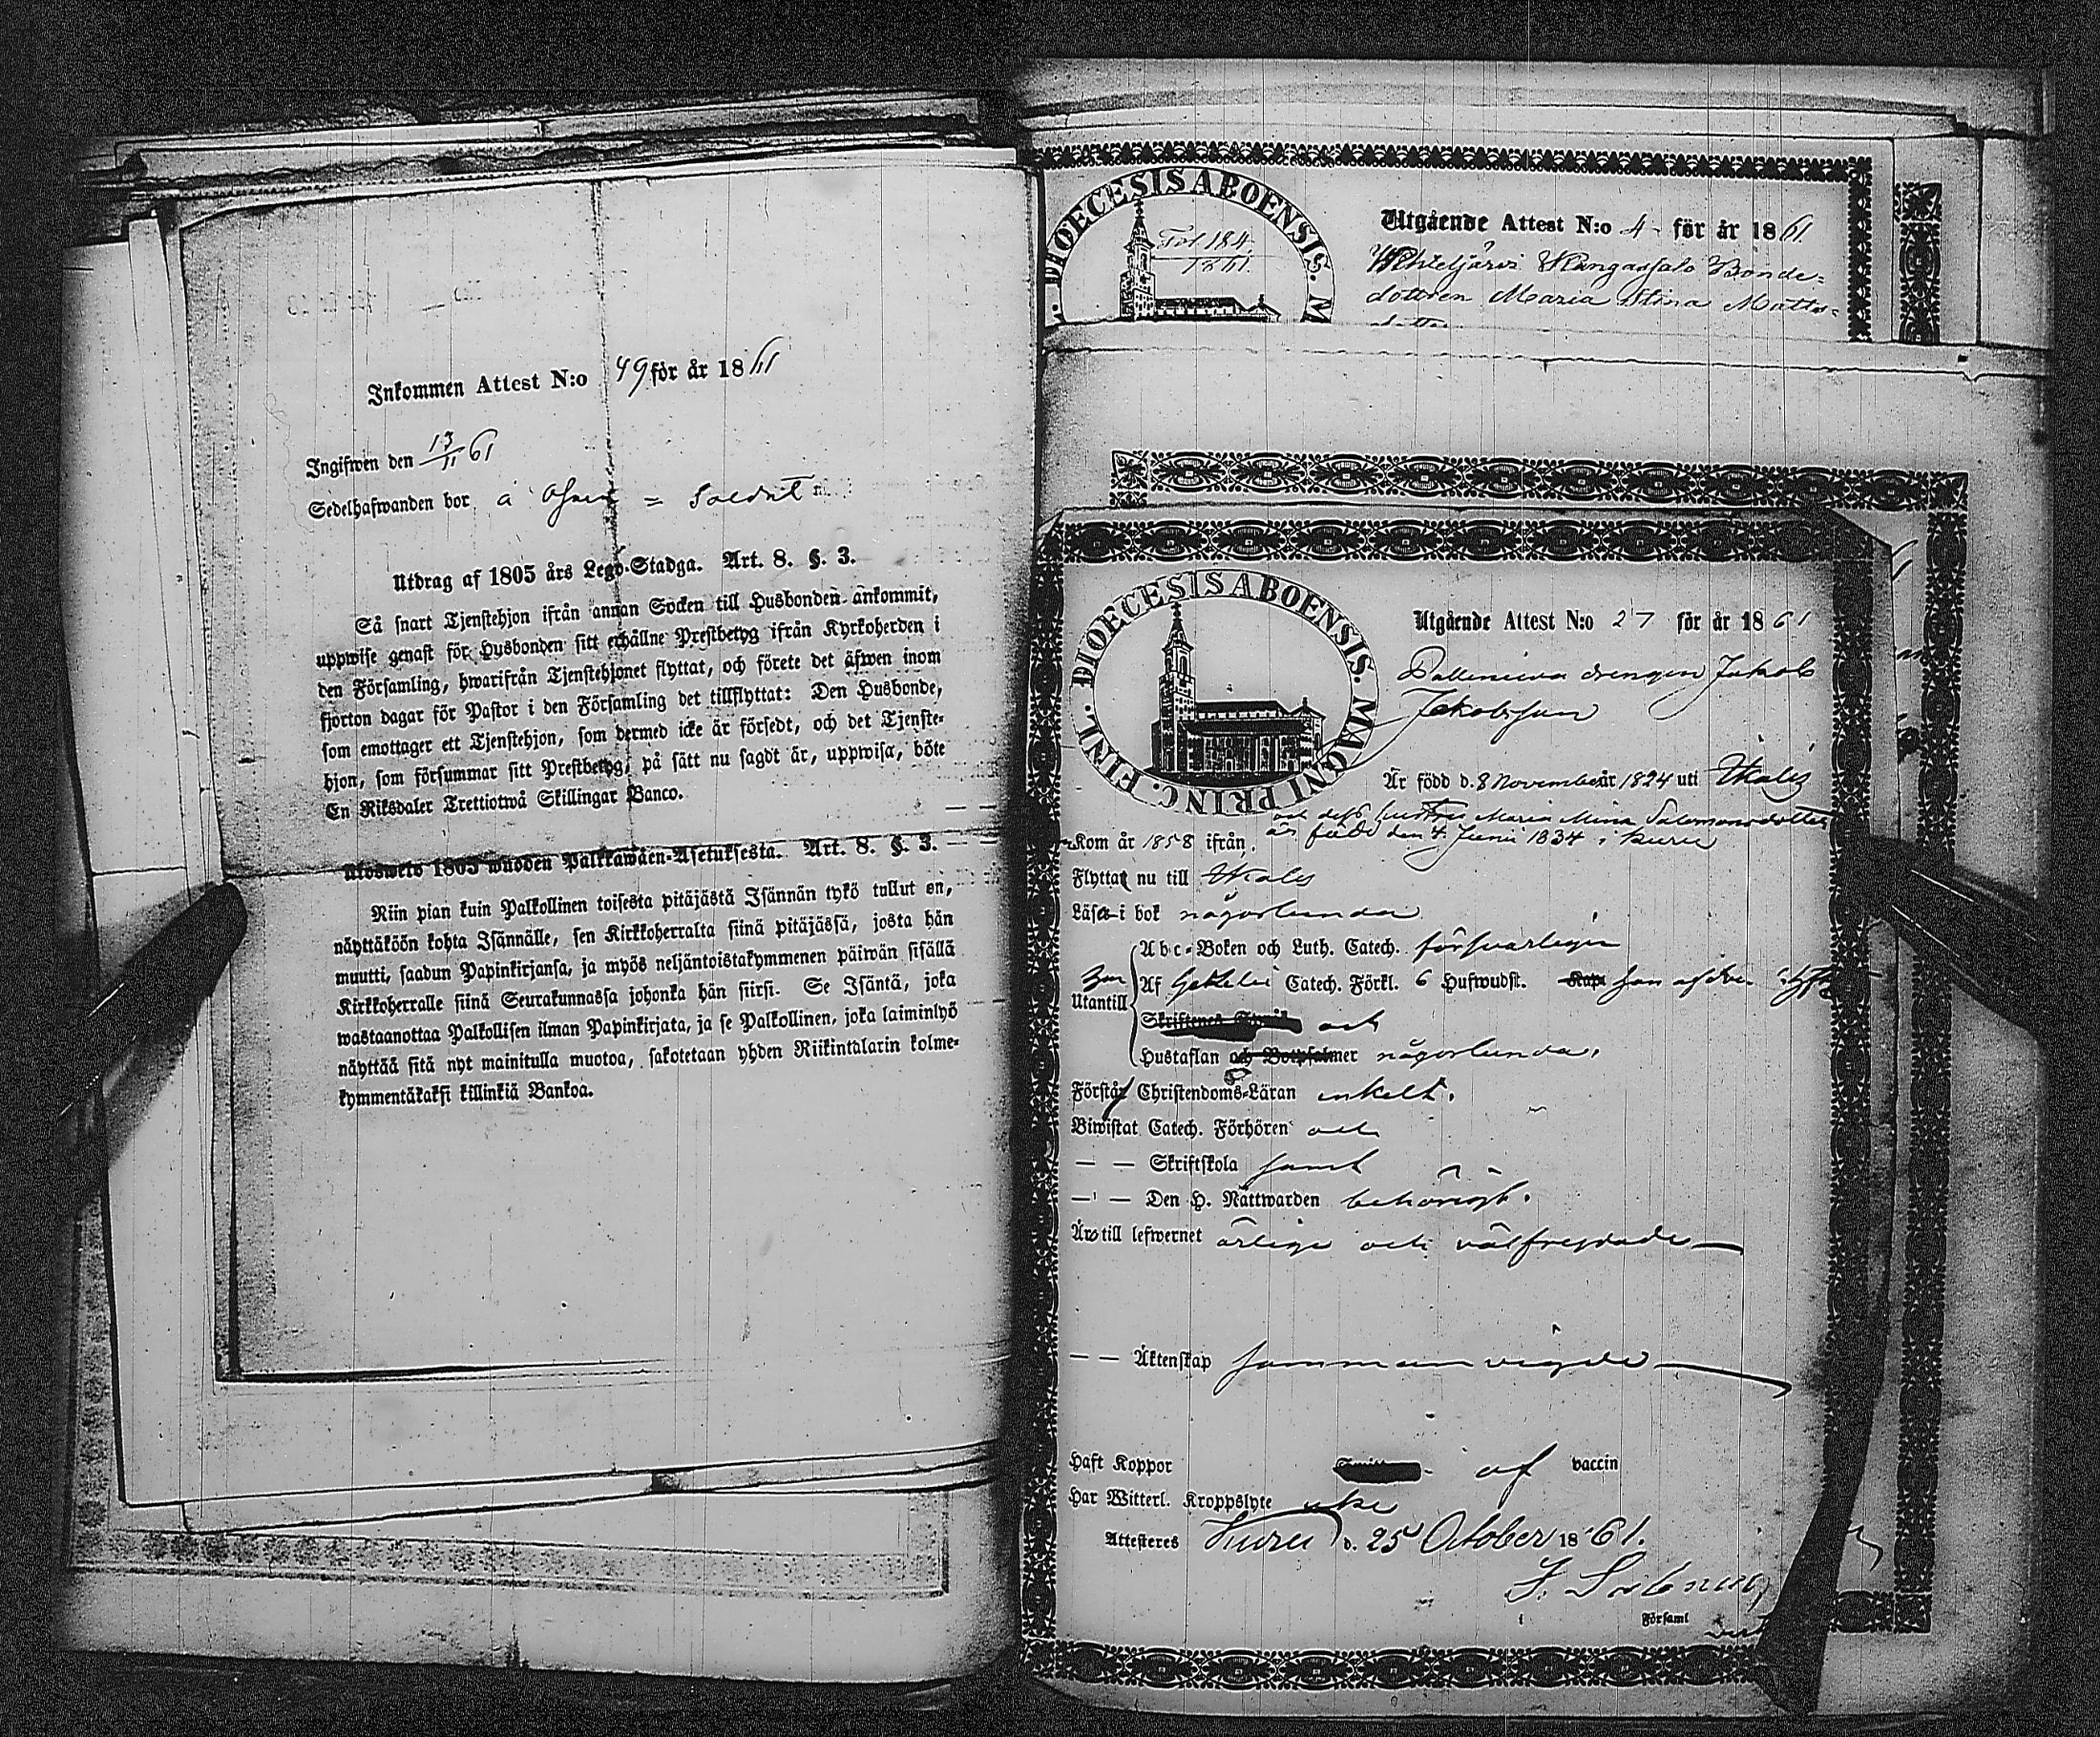 Inkommen Attest N:o 49 för år 1861
Ingifwen den 13/11 61
Sedelhafwanden bor å = Soldat
Utdrag af 1805 års Lego-Stadga. Art. 8. §. 3.
Så snart Tjenstehjon ifrån annan Socken till Husbonden ankommit,
uppwise genast för Husbonden sitt erhållne Prestbetyg ifrån Kyrkoherden i
den Församling, hwarifrån Tjenstehjonet flyttat, och förete det äfwen inom
fjorton dagar för Pastor i den Församling det tillflyttat: Den Husbonde,
som emottager ett Tjenstehjon, som dermed icke är försedt, och det Tjenste-
hjon, som försummar sitt Prestbetyg, på sätt nu sagdt är, uppwisa, böte
En Riksdaler Trettiotwå Skillingar Banco.
Ulosweto 1805 wuoden Palkkawäen-Asetuksesta. Art. 8. §. 3.
Niin pian kuin Palkollinen toisesta pitäjästä Isännän tykö tullut on,
näyttäköön kohta Isännälle, sen Kirkkoherralta siinä pitäjässä, josta hän
muutti, saadun Papinkirjansa, ja myös neljäntoistakymmenen päiwän sisällä
Kirkkoherralle siinä Seurakunnassa johonka hän siirsi. Se Isäntä, joka
wastaanottaa Palkollisen ilman Papinkirjata, ja se Palkollinen, joka laiminlyö
näyttää sitä nyt mainitulla muotoa, sakotetaan yhden Riikintalarin kolme-
kymmentäkaksi killinkiä Bankoa.
DIOECESIS ABOENSIS. M
Fol 184
1861.
Utgående Attest N:o 4 för år 1861.
Wehkejärvi Kangassalo Bonde-
dottren Maria Stina Matts-
dotter
DIOECESIS ABOENSIS. MAGNI PRINC. FINL.
Utgående Attest N:o 27 för år 1861
drengen Jakob
Jakobsson
Är född d. 8 November år 1824 uti Ikalis
och dess hustru Maria Mina Salomonsdotter
är född den 4 Junii 1834 i Kuru
Kom år 1858 ifrån
Flyttar nu till Ikalis
Läsa i bok någorlunda
Abc-Boken och Luth. Catech. försvarligen
Utantill
Af Catech. Förkl. 6 Hufwudst.
och
Hustaflan och Botpsalmer någorlunda,
Förstår Christendoms-Läran enkelt.
Biwistat Catech. Förhören och
— — Skriftskola samt
— — Den H. Nattwarden behörigt.
Äro till lefwernet ärlige och välfrejdade —
— — Äktenskap sammanvigde —
Haft Koppor af vaccin
Har Witterl. Kroppslyte icke
Attesteres Kuru d. 25 October 1861.
Församl